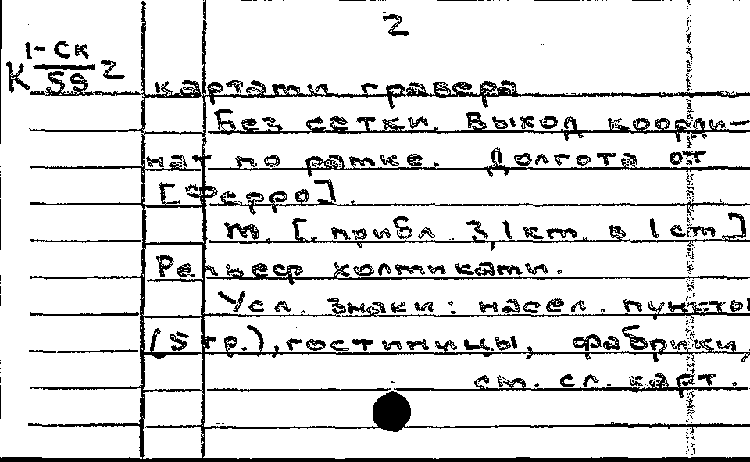 2
К 1-Ск/59 2
картами гравера
Без сетки. Выход коорди-
нат по рамке. Долгота от
[Ферро].
м. [прибл. 3,1 km. в 1 cm.]
Рельеф холмиками.
Усл. знаки: насел. пункты
(5 гр.), гостиницы, фабрики,
см. сл. карт.